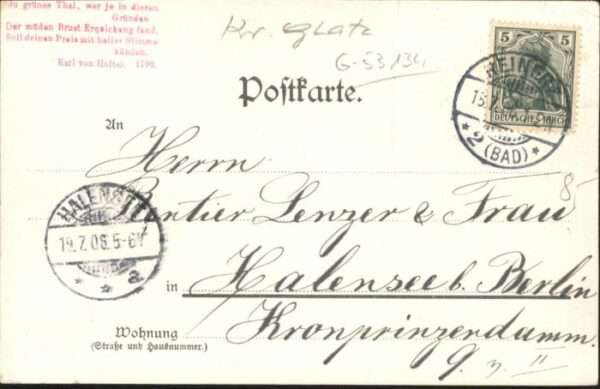 du grünes Thal, wer je in diesen
Gründen
Der müden Brust Erquickung fand,
Soll deinen Preis mit heller Stimme
künden.
Karl von Holtei. 1798.
Kr. Glatz
G-53134
5 5
DEUTSCHES REICH
REINERZ
2 (BAD)
Postkarte.
An
Herrn
Rentier Lenzer & Frau
8
HALENSEE
19.7.06. 5-6N
a
in Halensee b. Berlin
Wohnung
(Straße und Hausnummer.)
Kronprinzendamm.
9. II